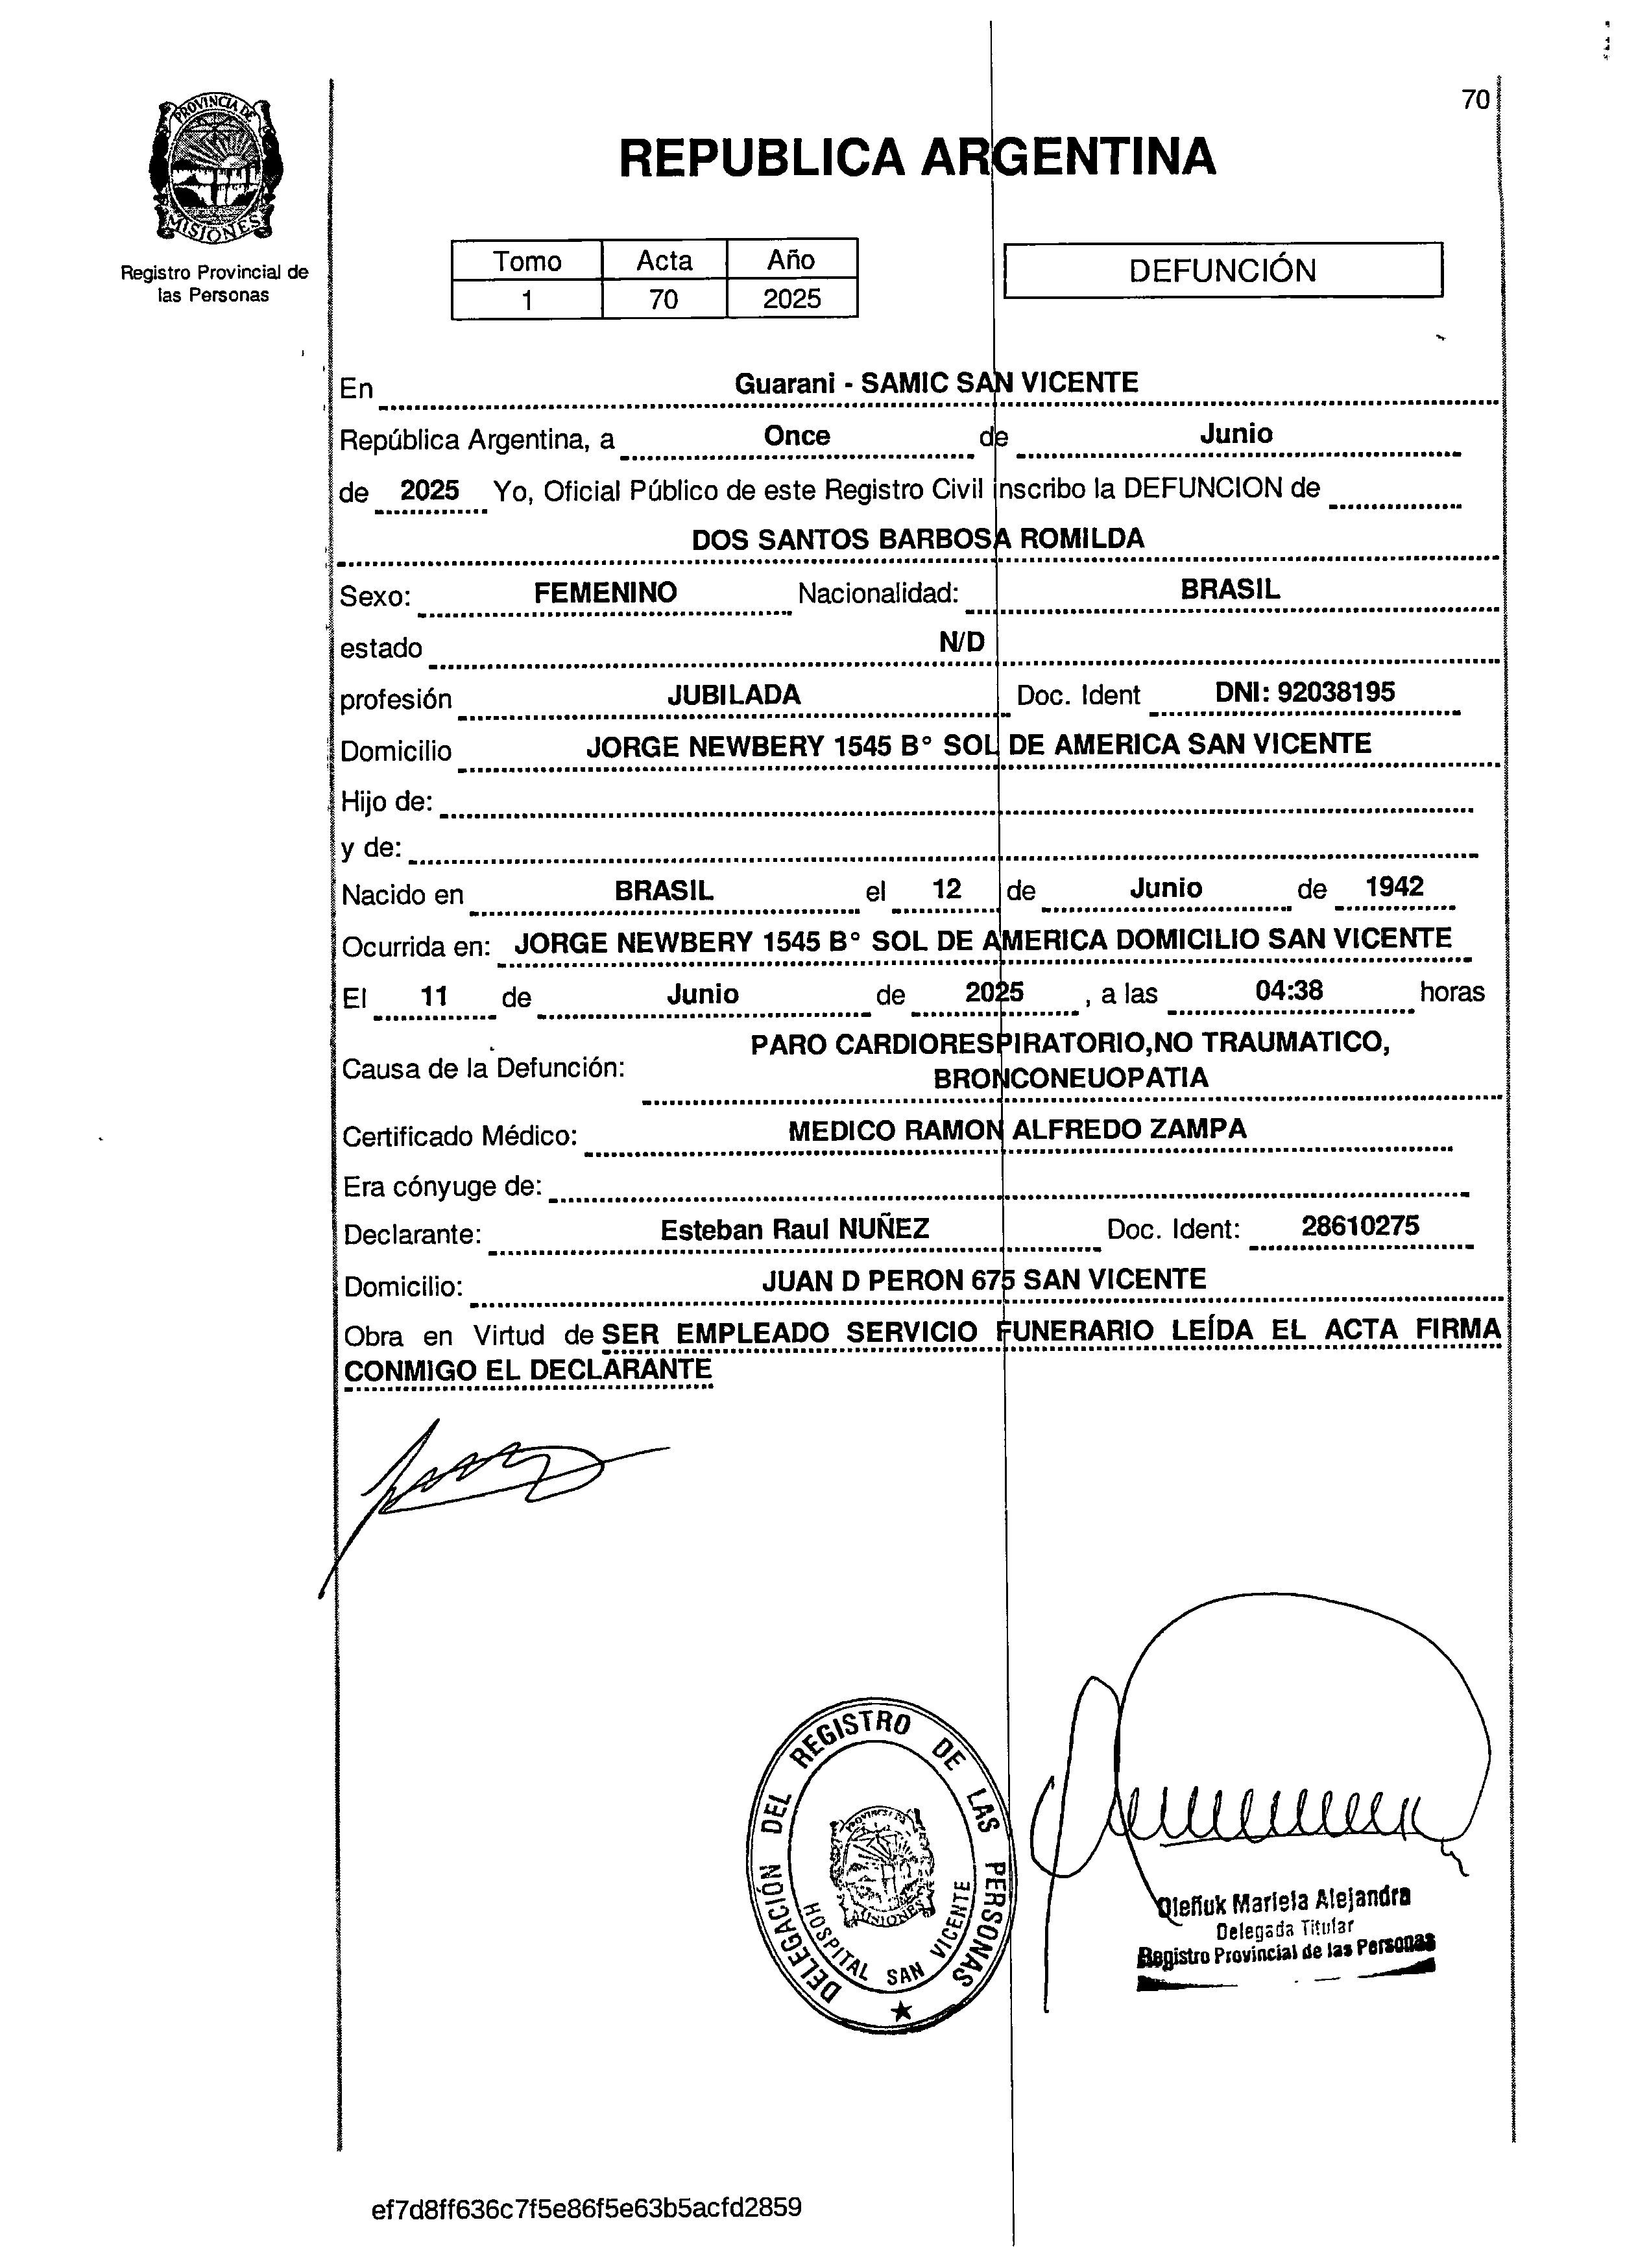 70
PROVINCIA DE
MISIONES
Registro Provincial de
las Personas
REPUBLICA ARGENTINA
Tomo Acta Año
1 70 2025
DEFUNCIÓN
En Guarani - SAMIC SAN VICENTE
República Argentina, a Once de Junio
de 2025 Yo, Oficial Público de este Registro Civil inscribo la DEFUNCION de
DOS SANTOS BARBOSA ROMILDA
Sexo: FEMENINO Nacionalidad: BRASIL
estado N/D
profesión JUBILADA Doc. Ident DNI: 92038195
Domicilio JORGE NEWBERY 1545 B° SOL DE AMERICA SAN VICENTE
Hijo de:
y de:
Nacido en BRASIL el 12 de Junio de 1942
Ocurrida en: JORGE NEWBERY 1545 B° SOL DE AMERICA DOMICILIO SAN VICENTE
El 11 de Junio de 2025 , a las 04:38 horas
Causa de la Defunción: PARO CARDIORESPIRATORIO,NO TRAUMATICO,
BRONCONEUOPATIA
Certificado Médico: MEDICO RAMON ALFREDO ZAMPA
Era cónyuge de:
Declarante: Esteban Raul NUÑEZ Doc. Ident: 28610275
Domicilio: JUAN D PERON 675 SAN VICENTE
Obra en Virtud de SER EMPLEADO SERVICIO FUNERARIO LEÍDA EL ACTA FIRMA
CONMIGO EL DECLARANTE
DELEGACIÓN DEL REGISTRO DE LAS PERSONAS
HOSPITAL SAN VICENTE
MISIONES
Oleñuk Mariela Alejandra
Delegada Titular
Registro Provincial de las Personas
ef7d8ff636c7f5e86f5e63b5acfd2859